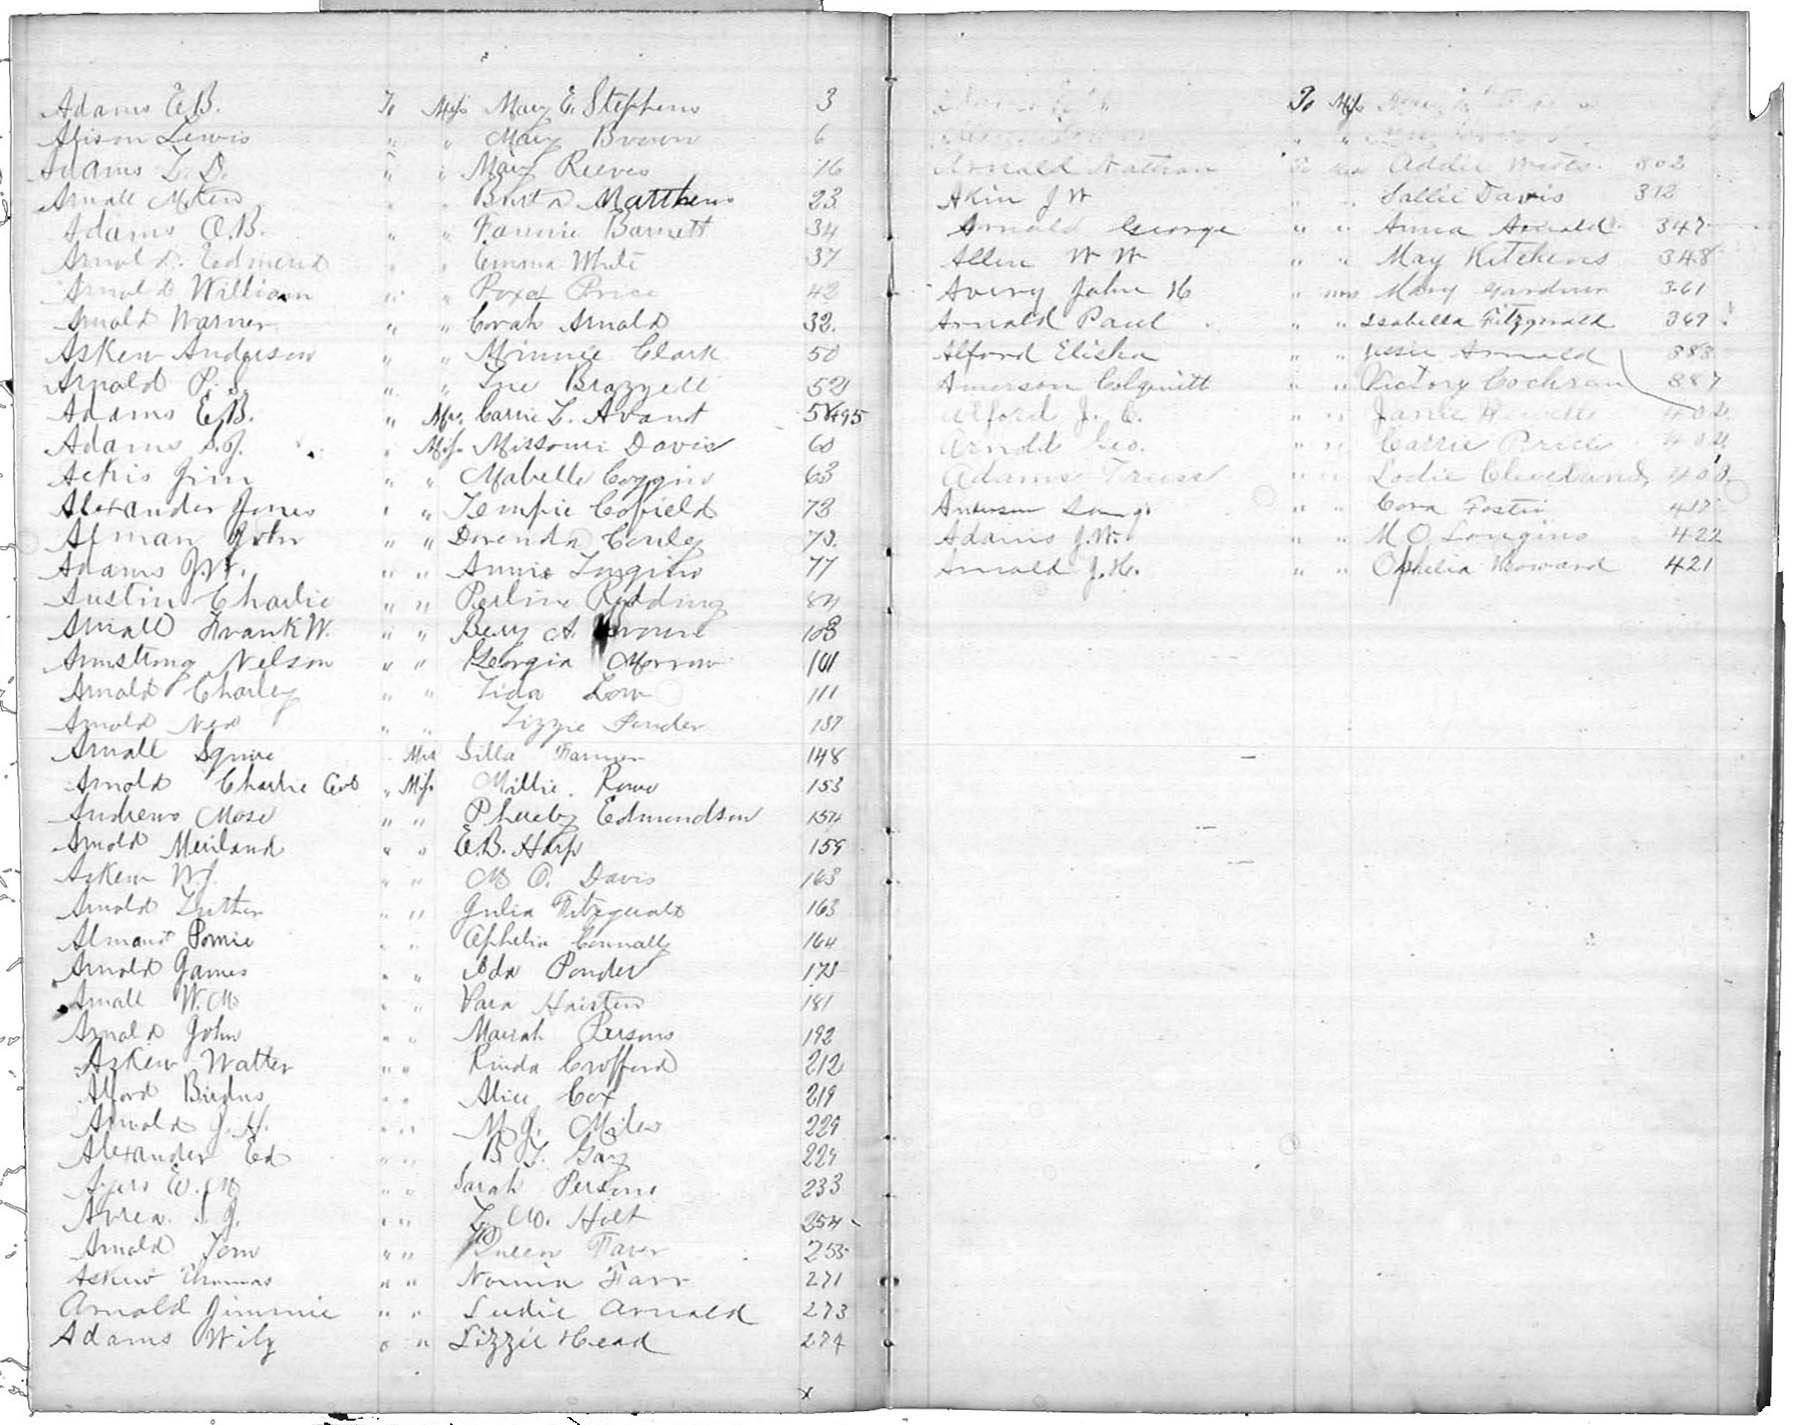 Adams E.B. To Miss Mary E. Stephens 3
Alison Lewis " " Mary Brown 6
Adams L.D. " " Mary Reeves 16
Arnall " " Matthews 23
Adams O.B. " " Fannie Barnett 34
Arnold Edmend " " Emma White 37
Arnold William " " Roxa Price 42
Arnold Warner " " Corah Arnold 32
Askew Anderson " " Minnie Clark 50
Arnold P.S. " " Brazzell 52
Adams E.B. " Mrs. Carrie L. Avant
Adams S.J. " Miss Missouri Davis 60
Jim " " Mabelle Coggins 63
Alexander Jones " " Tempie Cofield 73
Alman John " " Dorenda Conley 73
Adams J.W. " " Annie Longino 77
Austin Charlie " " Perline Redding 84
Arnall Frank W. " " A. 108
Armstrong Nelson " " Georgia Morrow 101
Arnold Charley " " Low 111
Arnold Ned " " Lizzie Ponder 137
Arnall Squire Mrs Silla Farmer 148
Arnold Charlie Col " Miss Millie Rowe 153
Andrews Mose " " Phoeby Edmundson 154
Arnold " " E.B. Harp 159
Askew W.J. " " M O. Davis 163
Arnold Luther " " Julia Fitzgerald 163
Almand Pomie " " Aphelia Connally 164
Arnold James " " Ada Ponder 173
Arnall W.M " " Hairston 181
Arnold John " " Mariah Persons 192
Askew Walter " " Rinda Crofford 212
Alford " " Alice Cox 219
Arnold J.H. " " M J. Miles 229
Alexander Ed " " B T. Gay 229
W. " " Sarah Persons 233
" " Holt 254
Arnold Tom " " Queen Farer 255
Askew Thomas " " Farr 271
Arnold Jimmie " " Ludie Arnold 273
Adams Wily " " Lizzie Head 274
x
To Miss
Arnold Nathan To Miss Addie 302
Akin J W " " Sallie Davis 312
Arnold George " " Anna Arnold 347
Allen W W " " May Kitchens 348
Avery John H " Mrs Mary Gardner 361
Arnold Paul " " Isabella Fitzgerald 369
Alford Elisha " " Jessie Arnold 383
Amerson Colquitt " " Victory Cochran 387
Alford J. C. " " Janie
Arnold Geo. " " Carrie Price 404
Adams " " Lodie Cleveland
" " Cora Foster 417
Adams J.W. " " M O Longino 422
Arnold J.H. " " Ophelia Howard 421